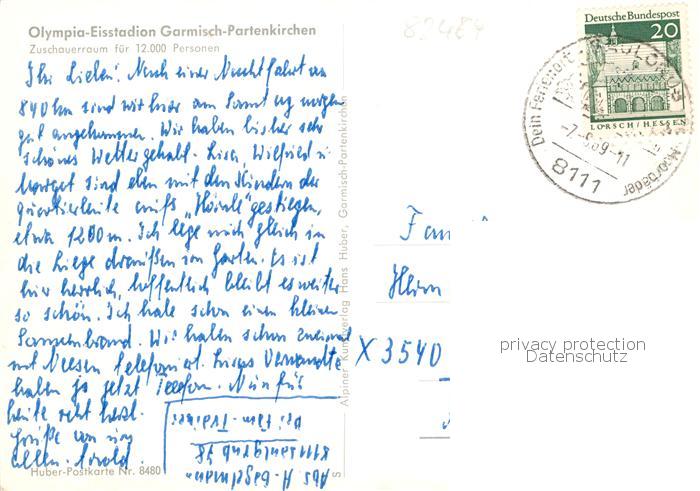 Olympia-Eisstadion Garmisch-Partenkirchen
Zuschauerraum für 12.000 Personen
Ihr Lieben! Nach einer Nachtfahrt von
840 km sind wir hier am Samstag morgen
gut angekommen. Wir haben bisher sehr
schönes Wetter gehabt. Lisa, Wilfried u.
Margot sind eben mit den Kindern der
Quartiersleute aufs „Hörnle" gestiegen,
etwa 1200 m. Ich lege mich gleich in
die Liege draußen im Garten. Es ist
hier herrlich, hoffentlich bleibt es weiter
so schön. Ich habe schon einen kleinen
Sonnenbrand. Wir haben schon zweimal
mit Neesen telefoniert. Lisas Verwandte
haben ja jetzt Telefon. Nun für
heute recht herzl.
Grüße von uns
allen.
Abs.
8111 Saulgrub 78
bei Fam.
Huber-Postkarte Nr. 8480
Alpiner Kunstverlag Hans Huber, Garmisch-Partenkirchen
S
Deutsche Bundespost
20
LORSCH/HESSEN
Dein Ferienort
Moorbäder
-7.-9.69-11
8111
Fam
Heim
X 3540
privacy protection
Datenschutz